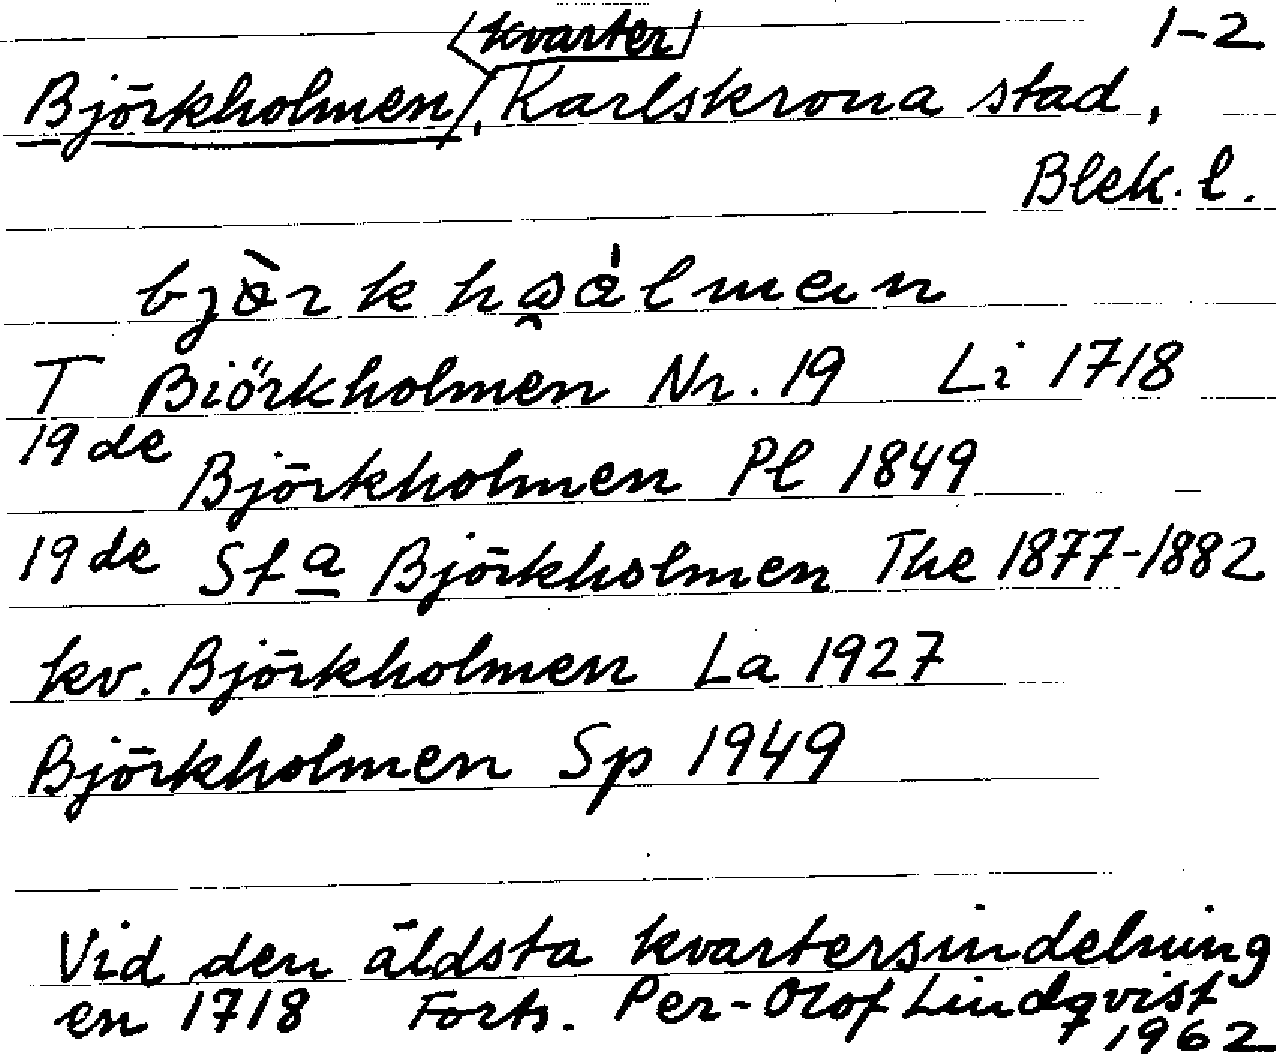 (kvarter) 1-2
Björkholmen, Karlskrona stad,
Blek. l.
T Biörkholmen Nr. 19 Li 1718
19de Björkholmen Pl 1849
19de St a Björkholmen The 1877-1882
kv. Björkholmen La 1927
Björkholmen Sp 1949
Vid den äldsta kvartersindelning
en 1718 Forts. Per-Olof Lindqvist
1962